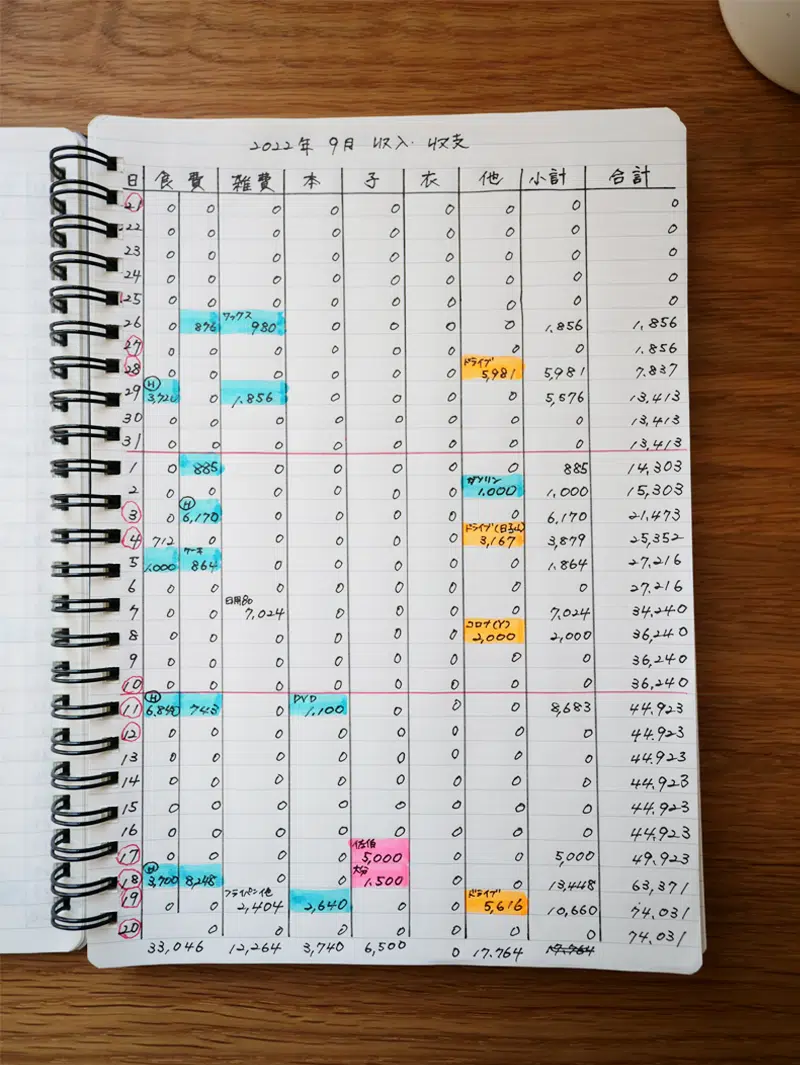 2022年 9月 収入・収支
日 食 費 雑費 本 子 衣 他 小計 合計
21 0 0 0 0 0 0 0 0 0
22 0 0 0 0 0 0 0 0 0
23 0 0 0 0 0 0 0 0 0
24 0 0 0 0 0 0 0 0 0
25 0 0 0 0 0 0 0 0 0
ワックス
26 0 876 980 0 0 0 0 1,856 1,856
27 0 0 0 0 0 0 0 0 1.856
ドライブ
28 0 0 0 0 0 0 5,981 5,981 7.837
H
29 3,720 0 1.856 0 0 0 0 5,576 13,413
30 0 0 0 0 0 0 0 0 13,413
31 0 0 0 0 0 0 0 0 13,413
1 0 885 0 0 0 0 0 885 14,303
ガソリン
2 0 0 0 0 0 0 1,000 1,000 15,303
H
3 0 6,170 0 0 0 0 0 6,170 21,473
ドライブ
4 712 0 0 0 0 0 3,167 3,879 25,352
ケーキ
5 1.000 864 0 0 0 0 0 1.864 27.216
6 0 0 0 0 0 0 0 0 27.216
7 0 0 7,024 0 0 0 0 7,024 34,240
コロナ(Y)
8 0 0 0 0 0 0 2,000 2,000 36,240
9 0 0 0 0 0 0 0 0 36,240
10 0 0 0 0 0 0 0 0 36,240
H DVD
11 6,840 743 0 1.100 0 0 0 8,683 44.923
12 0 0 0 0 0 0 0 0 44.923
13 0 0 0 0 0 0 0 0 44.923
14 0 0 0 0 0 0 0 0 44.923
15 0 0 0 0 0 0 0 0 44.923
16 0 0 0 0 0 0 0 0 44.923
佐伯
17 0 0 0 0 5,000 0 0 5,000 49.923
H 大分
18 3,700 8,248 0 0 1.500 0 0 13,448 63,371
フライパン他 ドライブ
19 0 0 2,404 2,640 0 0 5,616 10,660 74.031
20 0 0 0 0 0 0 0 74.031
33,046 12,264 3,740 6,500 0 17.764 17.764